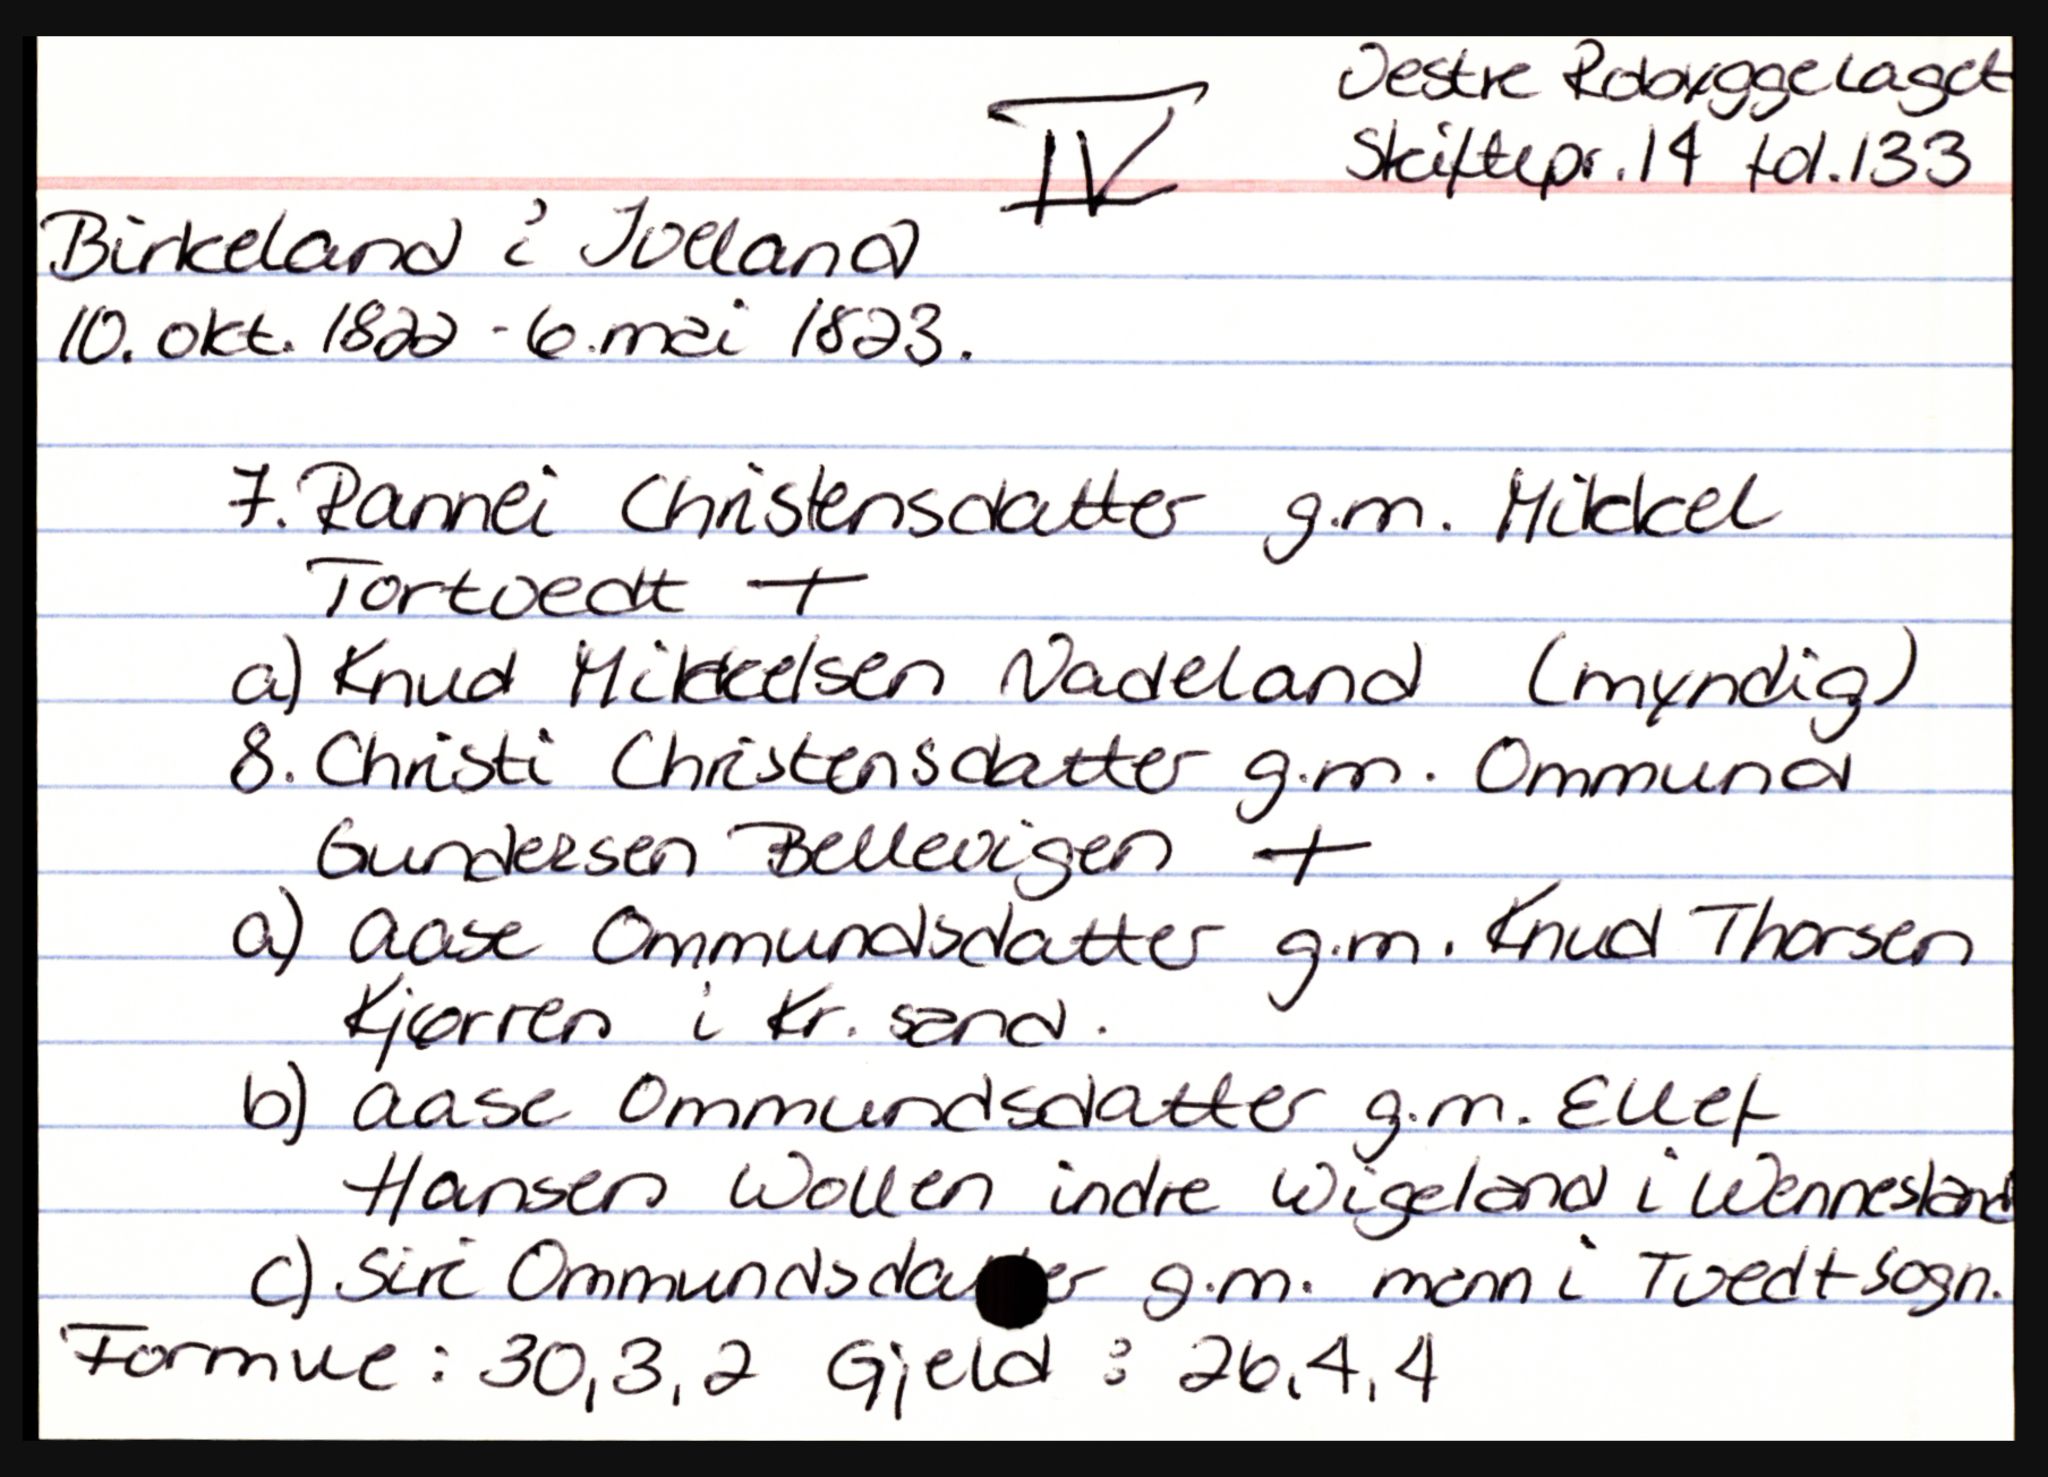 Vestre Robyggelaget
IV
Skiftepr. 14 fol. 133
Birkeland i Iveland
10. okt. 1822 - 6. mai 1823.
7. Rannei Christensdatter g.m. Mikkel
Tortvedt +
a) Knud Mikkelsen Nadeland (myndig)
8. Christi Christensdatter g.m. Ommund
Gundersen Bellevigen +
a) Aase Ommundsdatter g.m. Knud Thorsen
Kjørren i Kr. sand.
b) Aase Ommundsdatter g.m. Ellef
Hansen Wollen indre Wigeland i Wennesland
c) Siri Ommundsdatter g.m. mann i Tvedt sogn.
Formue: 30,3,2 Gjeld: 26,4,4